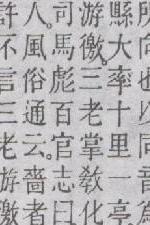 所向也同音
縣大率十里一亭
游徼。三老掌敎化
司馬彪百官志曰
人。風俗通云。嗇者
許不言三老游徼